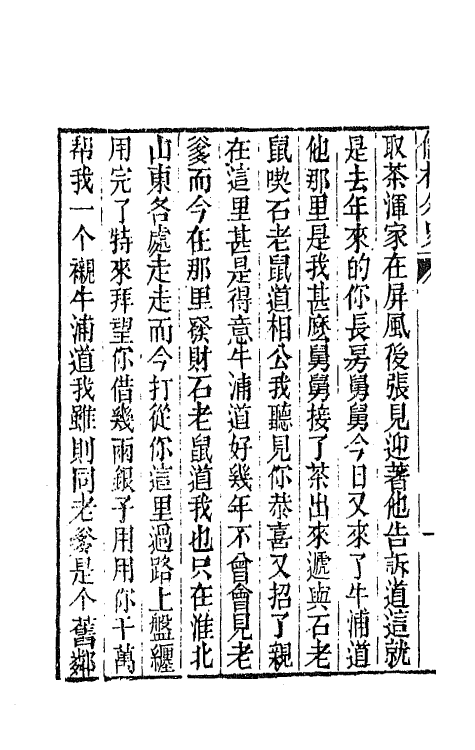 取茶渾家在屏風後張見迎著他告訴道這就
是去年來的你長房舅舅今日又來了牛浦道
他那里是我甚麽舅舅接了茶出來遞與石老
鼠喫石老鼠道相公我聽見你恭喜又招了親
在這里甚是得意牛浦道好幾年不曾會見老
爹而今在那里發財石老鼠道我也只在淮北
山東各處走走而今打從你這里過路上盤纏
用完了特來拜望你借幾兩銀子用用你千萬
帮我一个襯牛浦道我雖則同老爹是个舊鄰